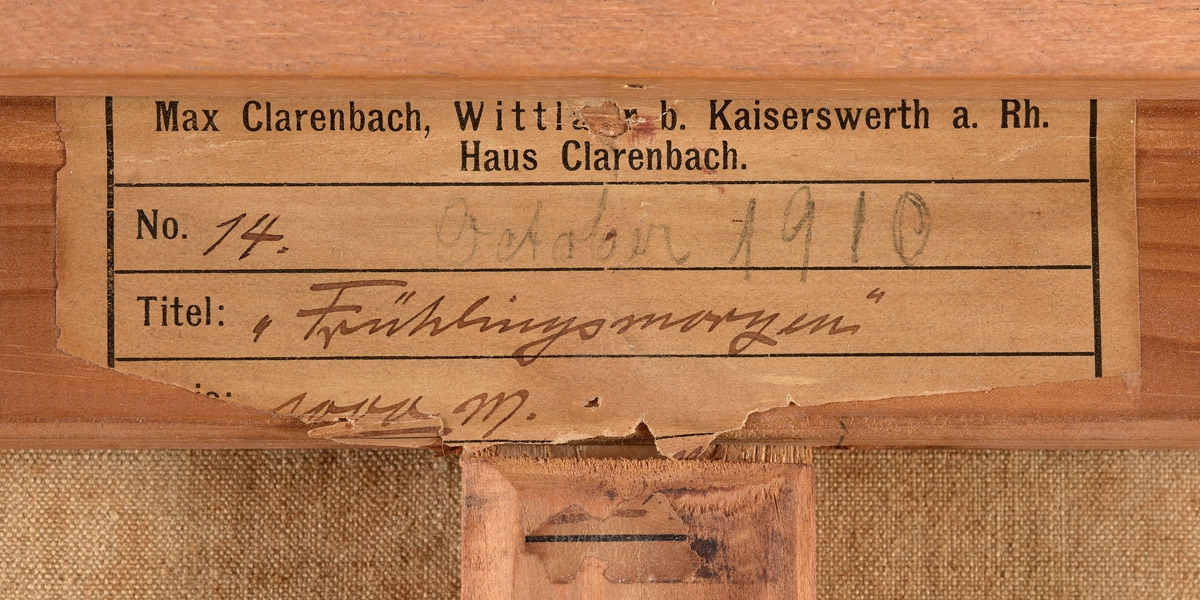 Max Clarenbach, Wittlaer b. Kaiserswerth a. Rh.
Haus Clarenbach.
No. 14. October 1910
Titel: „Frühlingsmorgen“
1000 M.